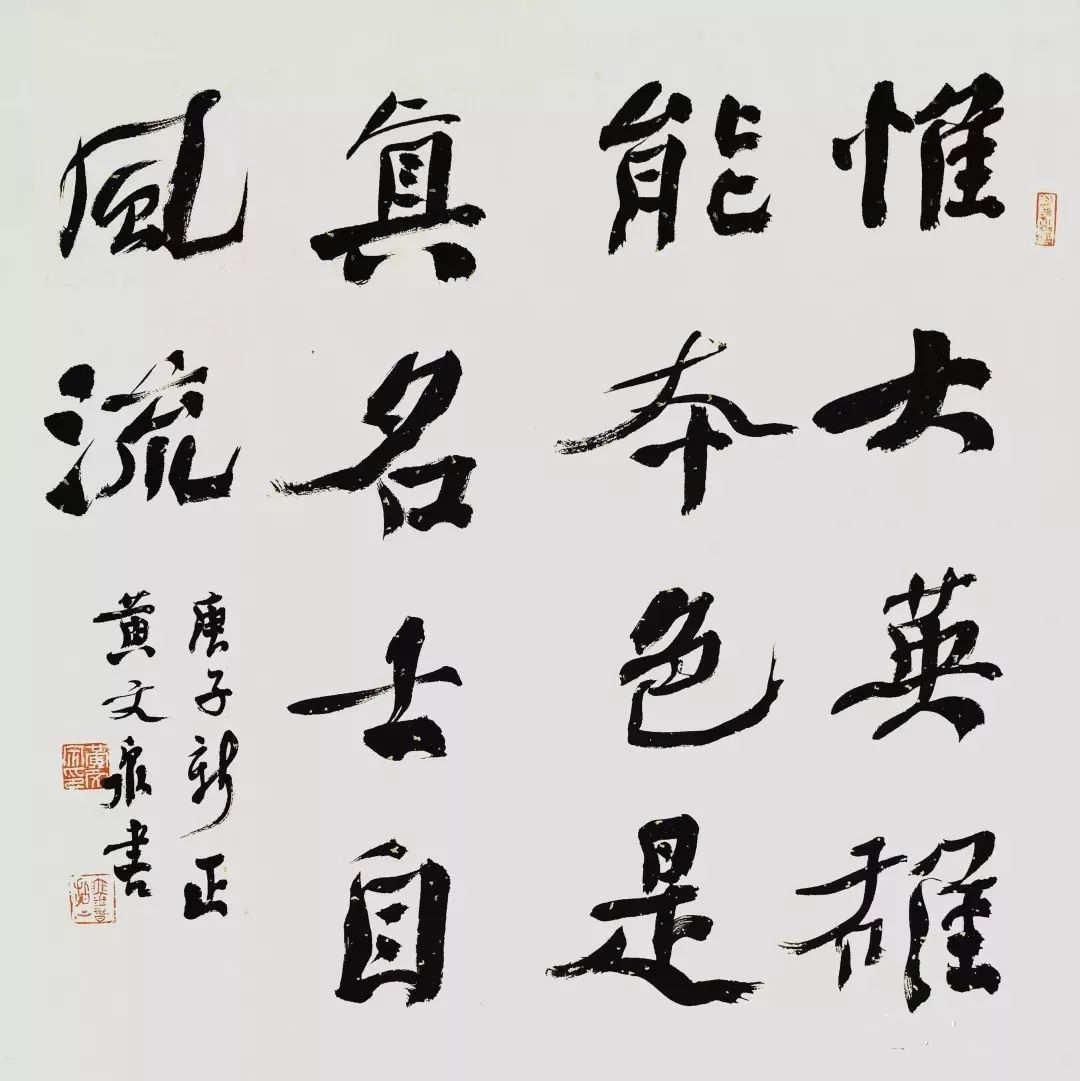 惟大英雄
能本色是
真名士自
風流
庚子新正
黄文泉書